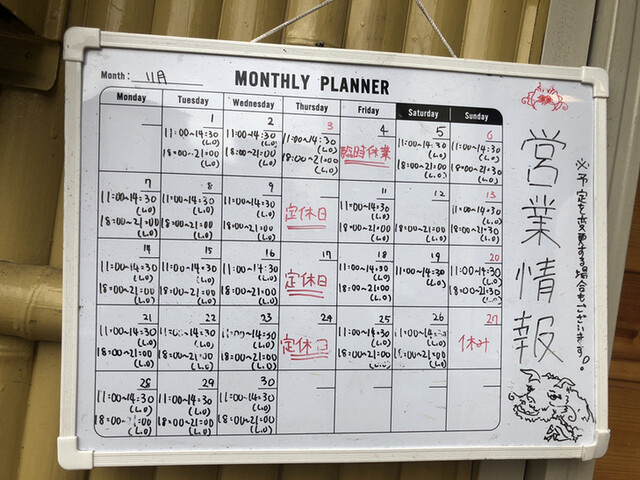 Month: 11月
MONTHLY PLANNER
Monday Tuesday Wednesday Thursday Friday Saturday Sunday
1 2 3 4 5 6
11:00~14:30 11:00~14:30 11:00~14:30 臨時休業 11:00~14:30 11:00~14:30
(L.O) (L.O) (L.O) (L.O) (L.O)
18:00~21:00 18:00~21:00 18:00~21:00 18:00~21:00 18:00~21:00
(L.O) (L.O) (L.O) (L.O) (L.O)
7 8 9 11 12 13
11:00~14:30 11:00~14:30 11:00~14:30 定休日 11:00~14:30 11:00~14:30
(L.O) (L.O) (L.O) (L.O) (L.O)
18:00~21:00 18:00~21:00 18:00~21:00 18:00~21:00 18:00~21:00 18:00~21:00
(L.O) (L.O) (L.O) (L.O) (L.O) (L.O)
14 15 16 17 18 19 20
11:00~14:30 11:00~14:30 11:00~14:30 定休日 11:00~14:30 11:00~14:30 11:00~14:30
(L.O) (L.O) (L.O) (L.O) (L.O) (L.O)
18:00~21:00 18:00~21:00 18:00~21:00 18:00~21:00 18:00~21:30
(L.O) (L.O) (L.O) (L.O) (L.O)
21 22 23 24 25 26 27
11:00~14:30 11:00~14:30 11:00~14:30 定休日 11:00~14:30 11:00~14:30 休み
(L.O) (L.O) (L.O) (L.O) (L.O)
18:00~21:00 18:00~21:00 18:00~21:00 18:00~21:00 18:00~21:00
(L.O) (L.O) (L.O) (L.O) (L.O)
28 29 30
11:00~14:30 11:00~14:30 11:00~14:30
(L.O) (L.O) (L.O)
18:00~21:00 18:00~21:00 18:00~21:00
(L.O) (L.O) (L.O)
営業情報
※予定を変更する場合もございます。